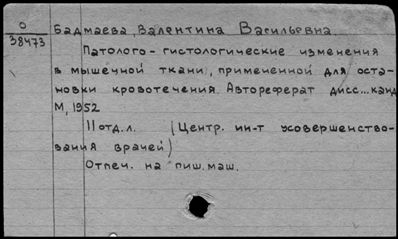 О
38473
Бадмаева, Валентина Васильевна.
Патолого-гистологические изменения
в мышечной ткани, примененной для оста-
новки кровотечения. Автореферат дисс...канд
М, 1952
11 отд.л. (Центр. ин-т усовершенство-
вания врачей)
Отпеч. на пиш.маш.